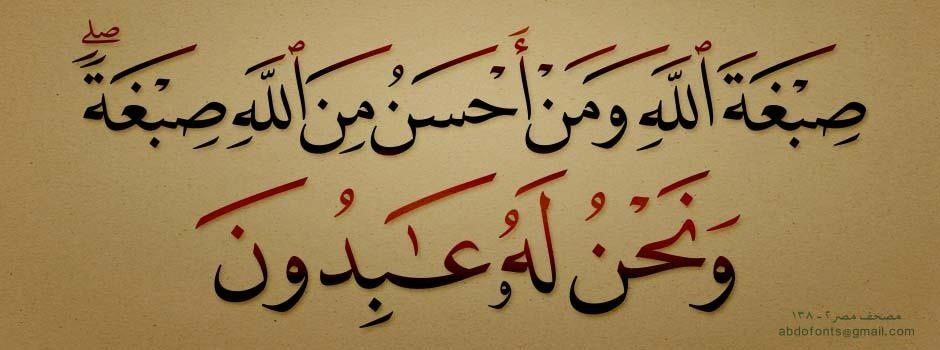 صِبْغَةَ ٱللَّهِ وَمَنْ أَحْسَنُ مِنَ ٱللَّهِ صِبْغَةً ۖ
وَنَحْنُ لَهُۥ عَـٰبِدُونَ
مصحف مصر ٢ - ١٣٨
abdofonts@gmail.com